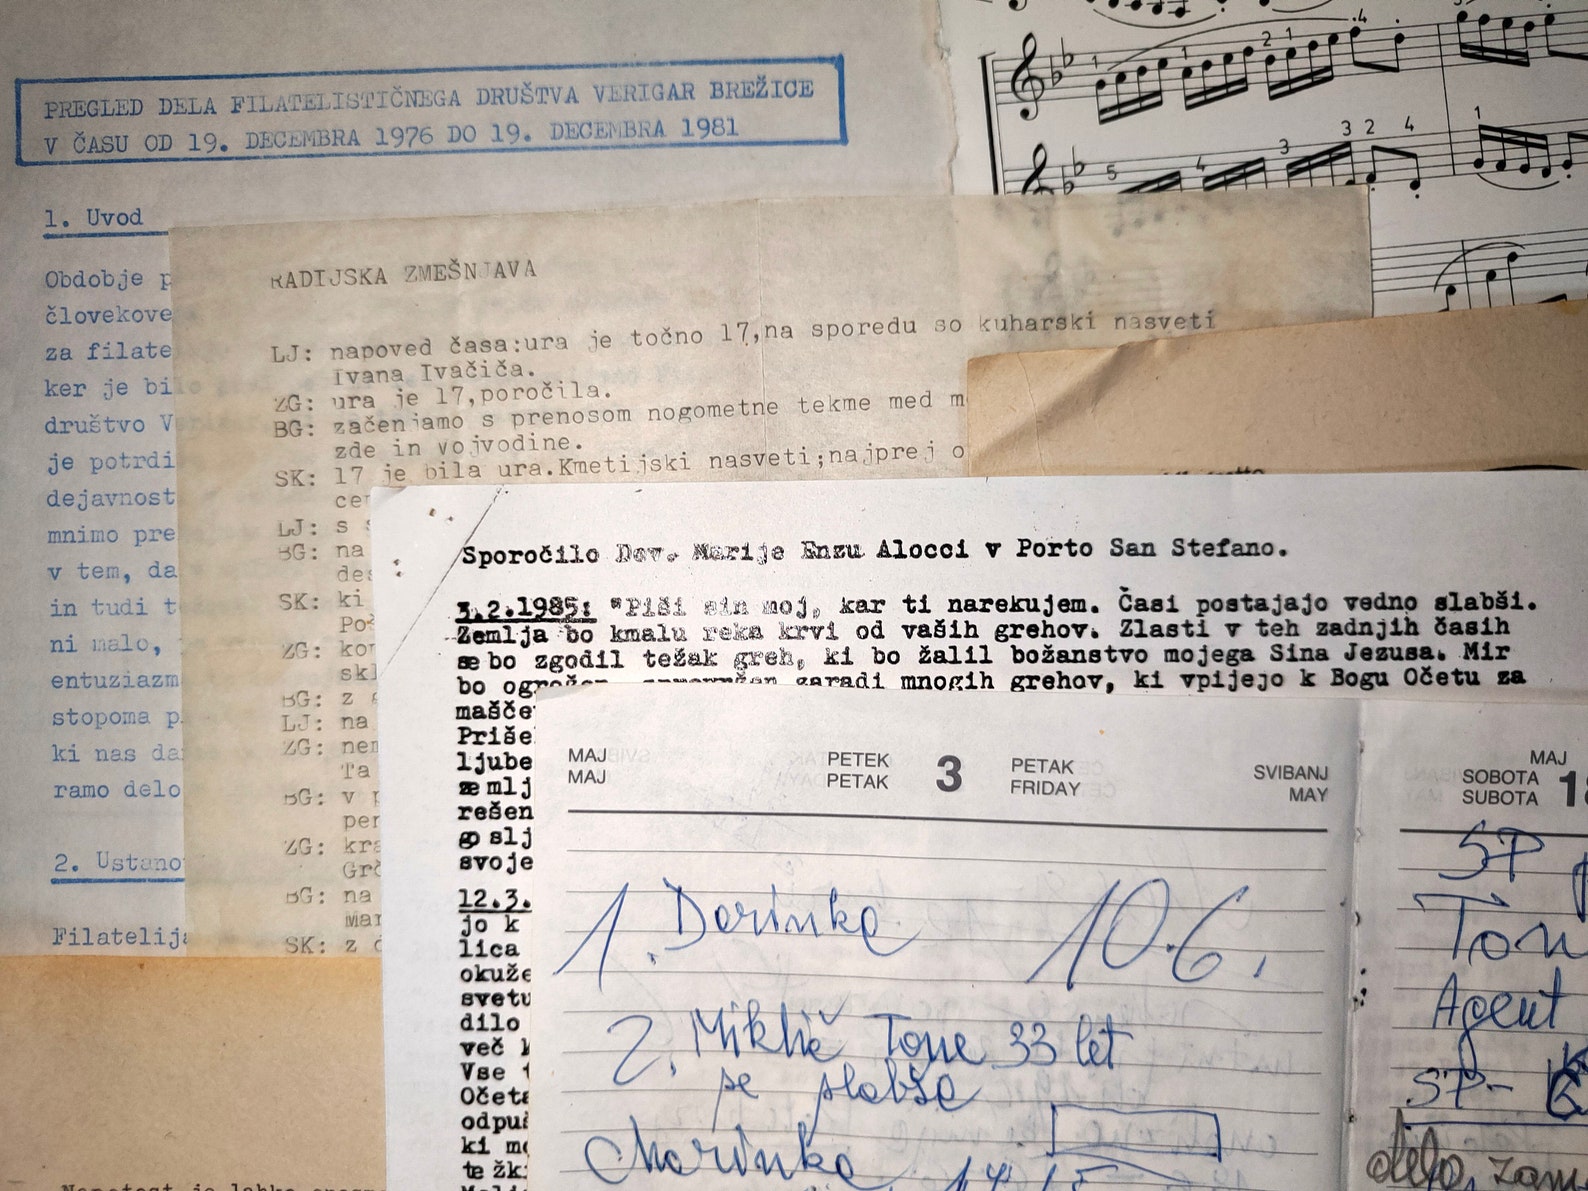 PREGLED DELA FILATELISTIČNEGA DRUŠTVA VERIGAR BREŽICE
V ČASU OD 19. DECEMBRA 1976 DO 19. DECEMBRA 1981
1. Uvod
Obdobje p
človekove
za filate
ker je bil
društvo V
je potrdi
dejavnost
mnimo pre
v tem, da
in tudi t
ni malo,
entuziazm
stopoma p
ki nas da
ramo delo
2. Ustano
Filatelija
RADIJSKA ZMEŠNJAVA
LJ: napoved časa:ura je točno 17,na sporedu so kuharski nasveti
Ivana Ivačiča.
ZG: ura je 17,poročila.
BG: začenjamo s prenosom nogometne tekme med m
zde in vojvodine.
SK: 17 je bila ura.Kmetijski nasveti;najprej o
cen
LJ: s s
BG: na
des
SK: ki
Poč
ZG: kon
skl
BG: z
LJ: na
ZG: nem
Ta
BG: v p
per
ZG: kra
Grč
BG: na
mar
SK: z
1 4
1
2 1
5 4 3 3 2 4
1
Sporočilo Dev. Marije Enzu Alocci v Porto San Stefano.
3.2.1985: "Piši sin moj, kar ti narekujem. Časi postajajo vedno slabši.
Zemlja bo kmalu reka krvi od vaših grehov. Zlasti v teh zadnjih časih
se bo zgodil težak greh, ki bo žalil božanstvo mojega Sina Jezusa. Mir
bo ogrožen, zaradi mnogih grehov, ki vpijejo k Bogu Očetu za
mašče
Priše
ljube
zemlj
rešen
go slj
svoje
12.3.
jo k
lica
okuže
svetu
dilo
več
Vse
Očeta
odpuš
ki mo
težk
MAJ PETEK 3 PETAK SVIBANJ
MAJ PETAK FRIDAY MAY
1. Dorinka 10.6.
2. Miklič Tone 33 let
se slabše
Marinka 14 15
MAJ
SOBOTA 18
SUBOTA
SP
Ton
Agent
SP-
dela, zam